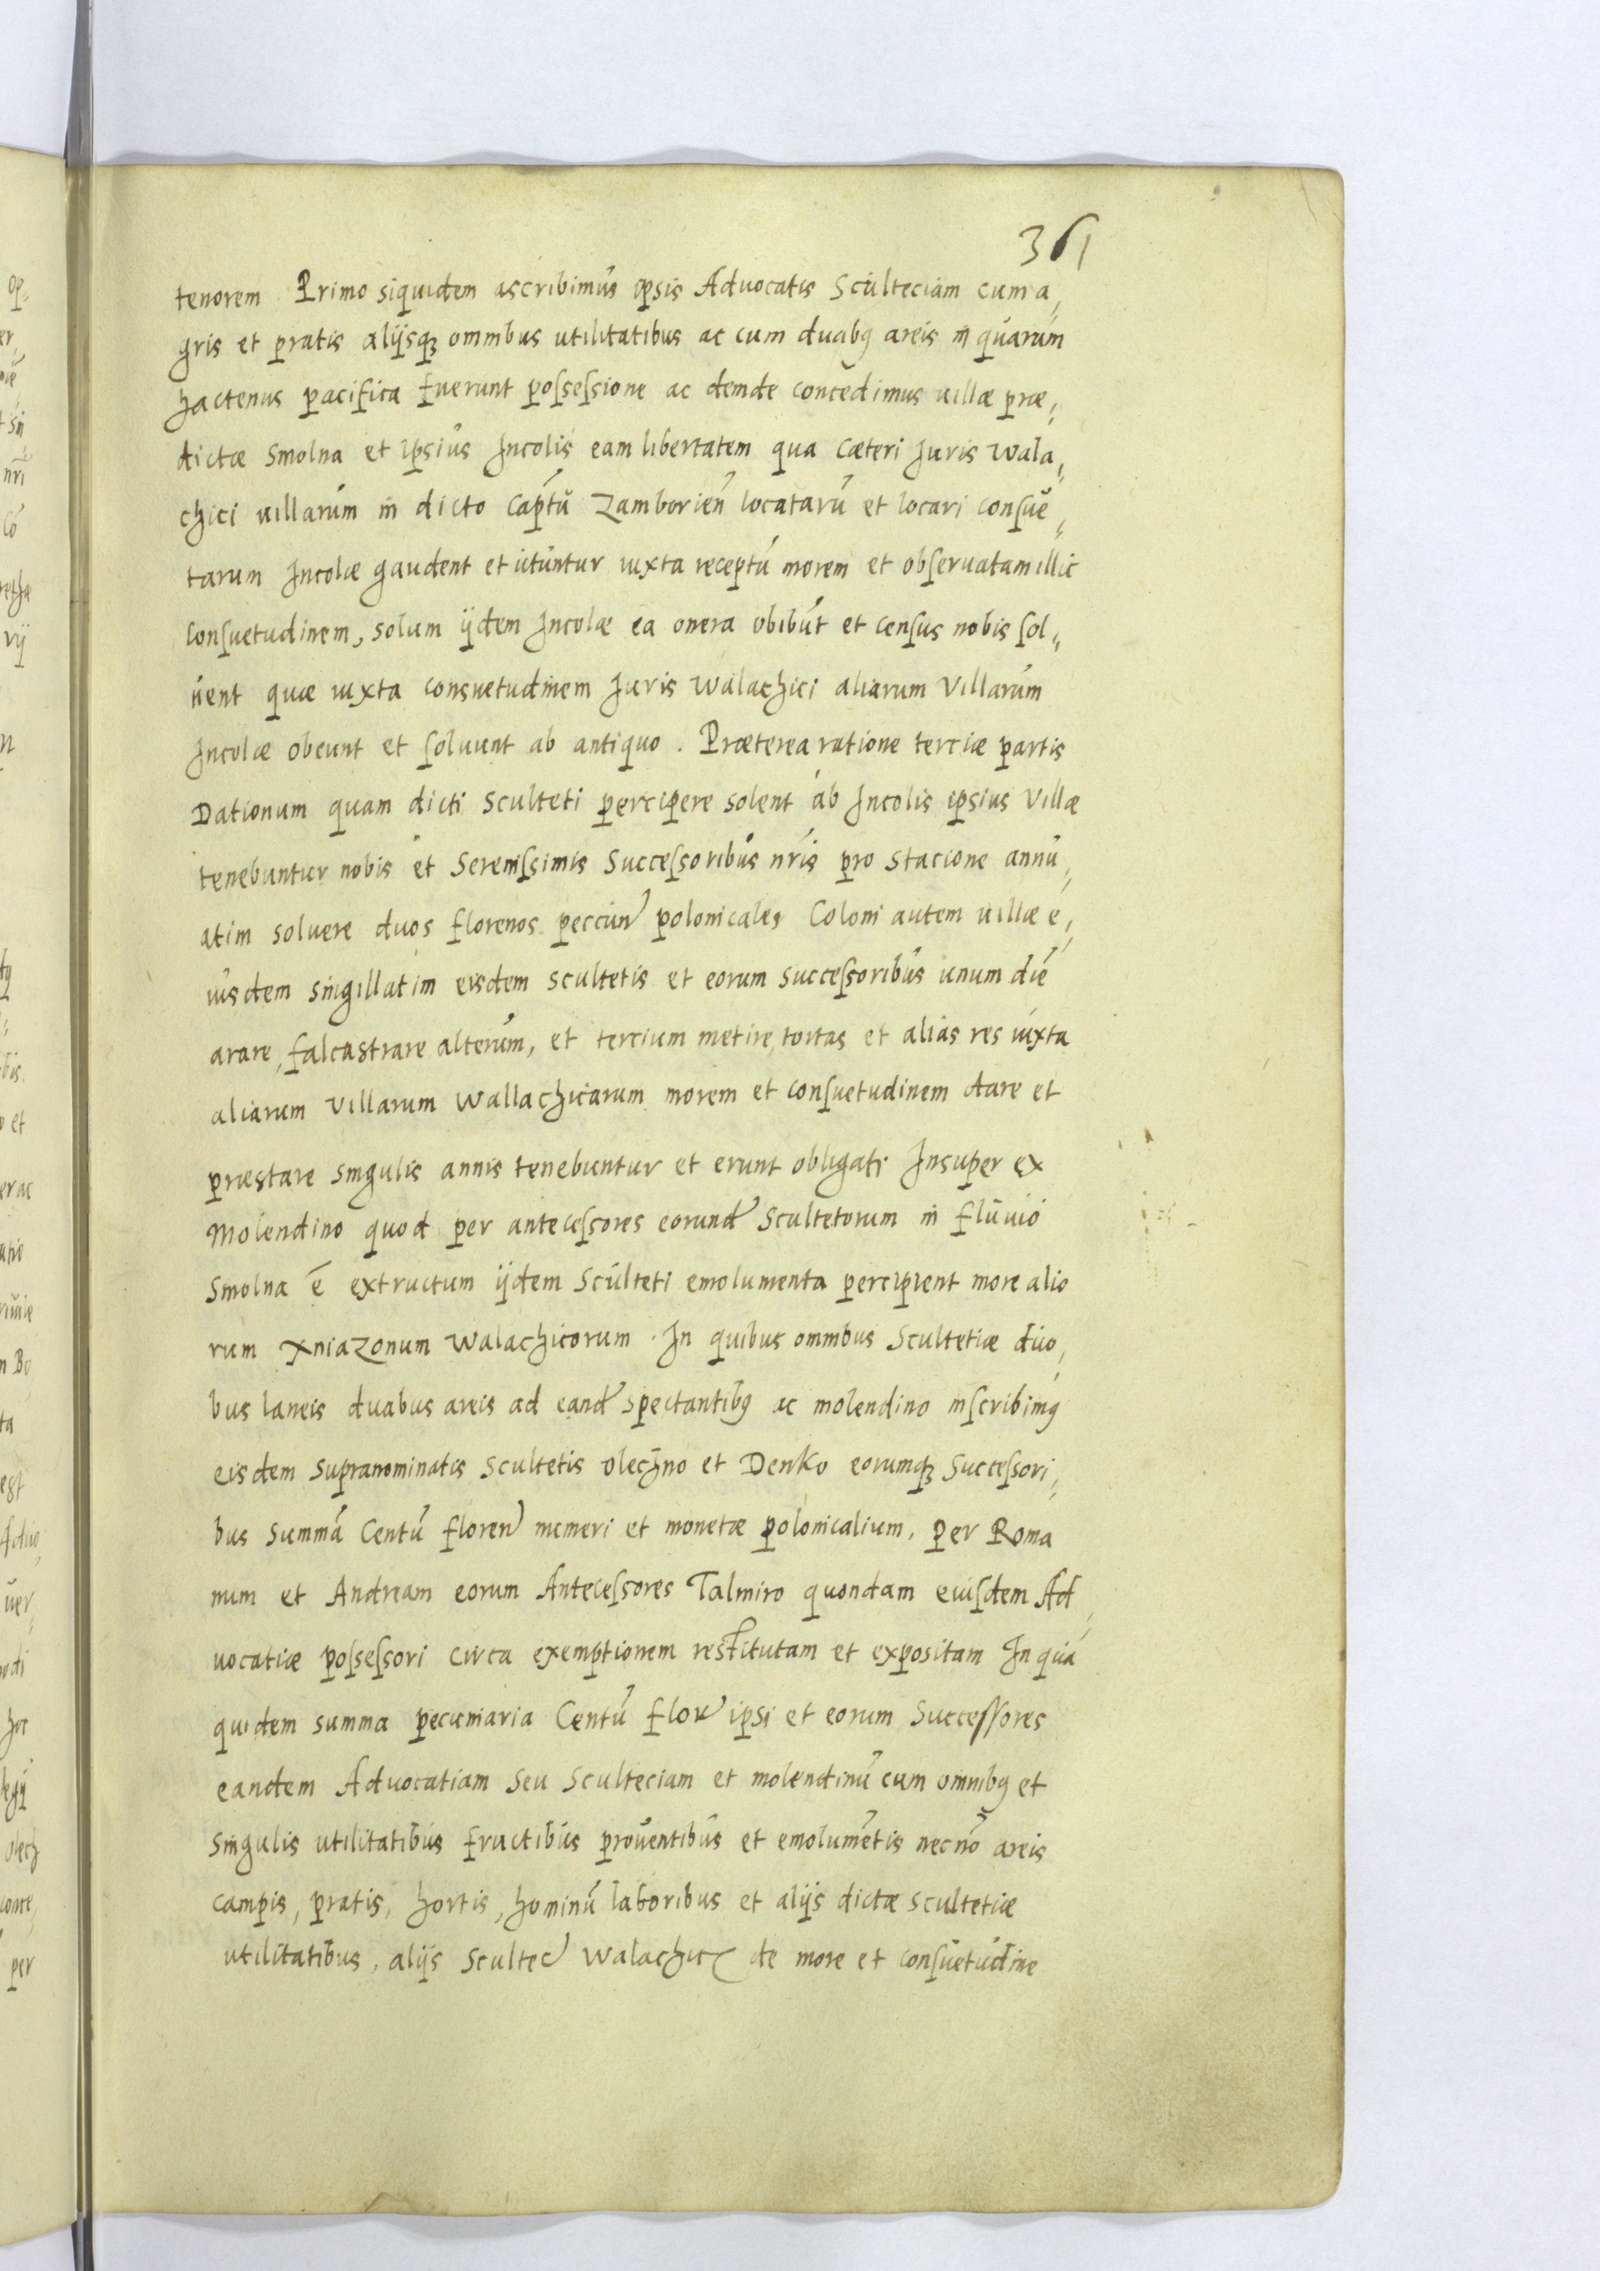 361
tenorem Primo siquidem ascribimus ipsis Advocatis Scúlteciam cum a,
gris et pratis alijsqꝫ omnibus utilitatibus ac cum duabꝯ areis in quarum
hactenus pacifica fuerunt poſseſsione ac deinde concedimus uillæ præ,
dictæ Smolna et ipsius Incolis eam libertatem qua cæteri Juris Wala,
chici uillarum in dicto Captũ Zamborien̄ locatarũ et locari conſue,
tarum Incolæ gaudent et utuntur iuxta receptũ morem et obſeruatam illic
conſuetudinem, solum ijdem Incolæ ea onera obibũt et cenſus nobis ſol,
uent quæ iuxta consuetudinem Juris Walachici aliarum Villarum
Incolæ obeunt et ſoluunt ab antiquo. Præterea ratione terciæ partis
Dationum quam dicti Sculteti percipere solent ab Incolis ipsius Villæ
tenebuntur nobis et Sereniſsimis Succeſsoribus nr̄is pro Stacione annu,
atim soluere duos florenos peccun̄ polonicales Coloni autem uillæ e,
iusdem singillatim eisdem scultetis et eorum succeſsoribus unum diē
arare, falcastrare alterum, et tercium metire, tortas et alias res iuxta
aliarum Villarum Wallachicarum morem et conſuetudinem dare et
præstare singulis annis tenebuntur et erunt obligati Insuper ex
Molendino quod per anteceſsores eorund̄ Scultetorum in fluuio
Smolna ē extructum ijdem Scúlteti emolumenta percipient more alio
rum XniaZonum Walachicorum. In quibus omnibus Scultetiæ duo,
bus laneis duabus areis ad eand̄ spectantibꝯ ac molendino inſcribimꝯ
eisdem supranominatis Scultetis Olechno et Denko eorumqꝫ Succeſsori,
bus summã Centũ floren̄ numeri et monetæ polonicalium, Per Roma
num et Andream eorum Anteceſsores Talmiro quondam eiuſdem Ad,
uocatiæ poſseſsori circa exemptionem restitutam et expositam In qua
quidem summa pecuniaria Centũ flor̄ ipsi et eorum Succeſſores
eandem Advocatiam seu Sculteciam et molendinũ cum omnibꝯ et
singulis utilitatibus fructibus prouentibus et emolumētis necnō areis
campis, pratis, hortis, hominũ laboribus et alijs dictæ scultetiæ
utilitatibus, alijs Scultec̄ Walachic̄ de more et conſuetudine